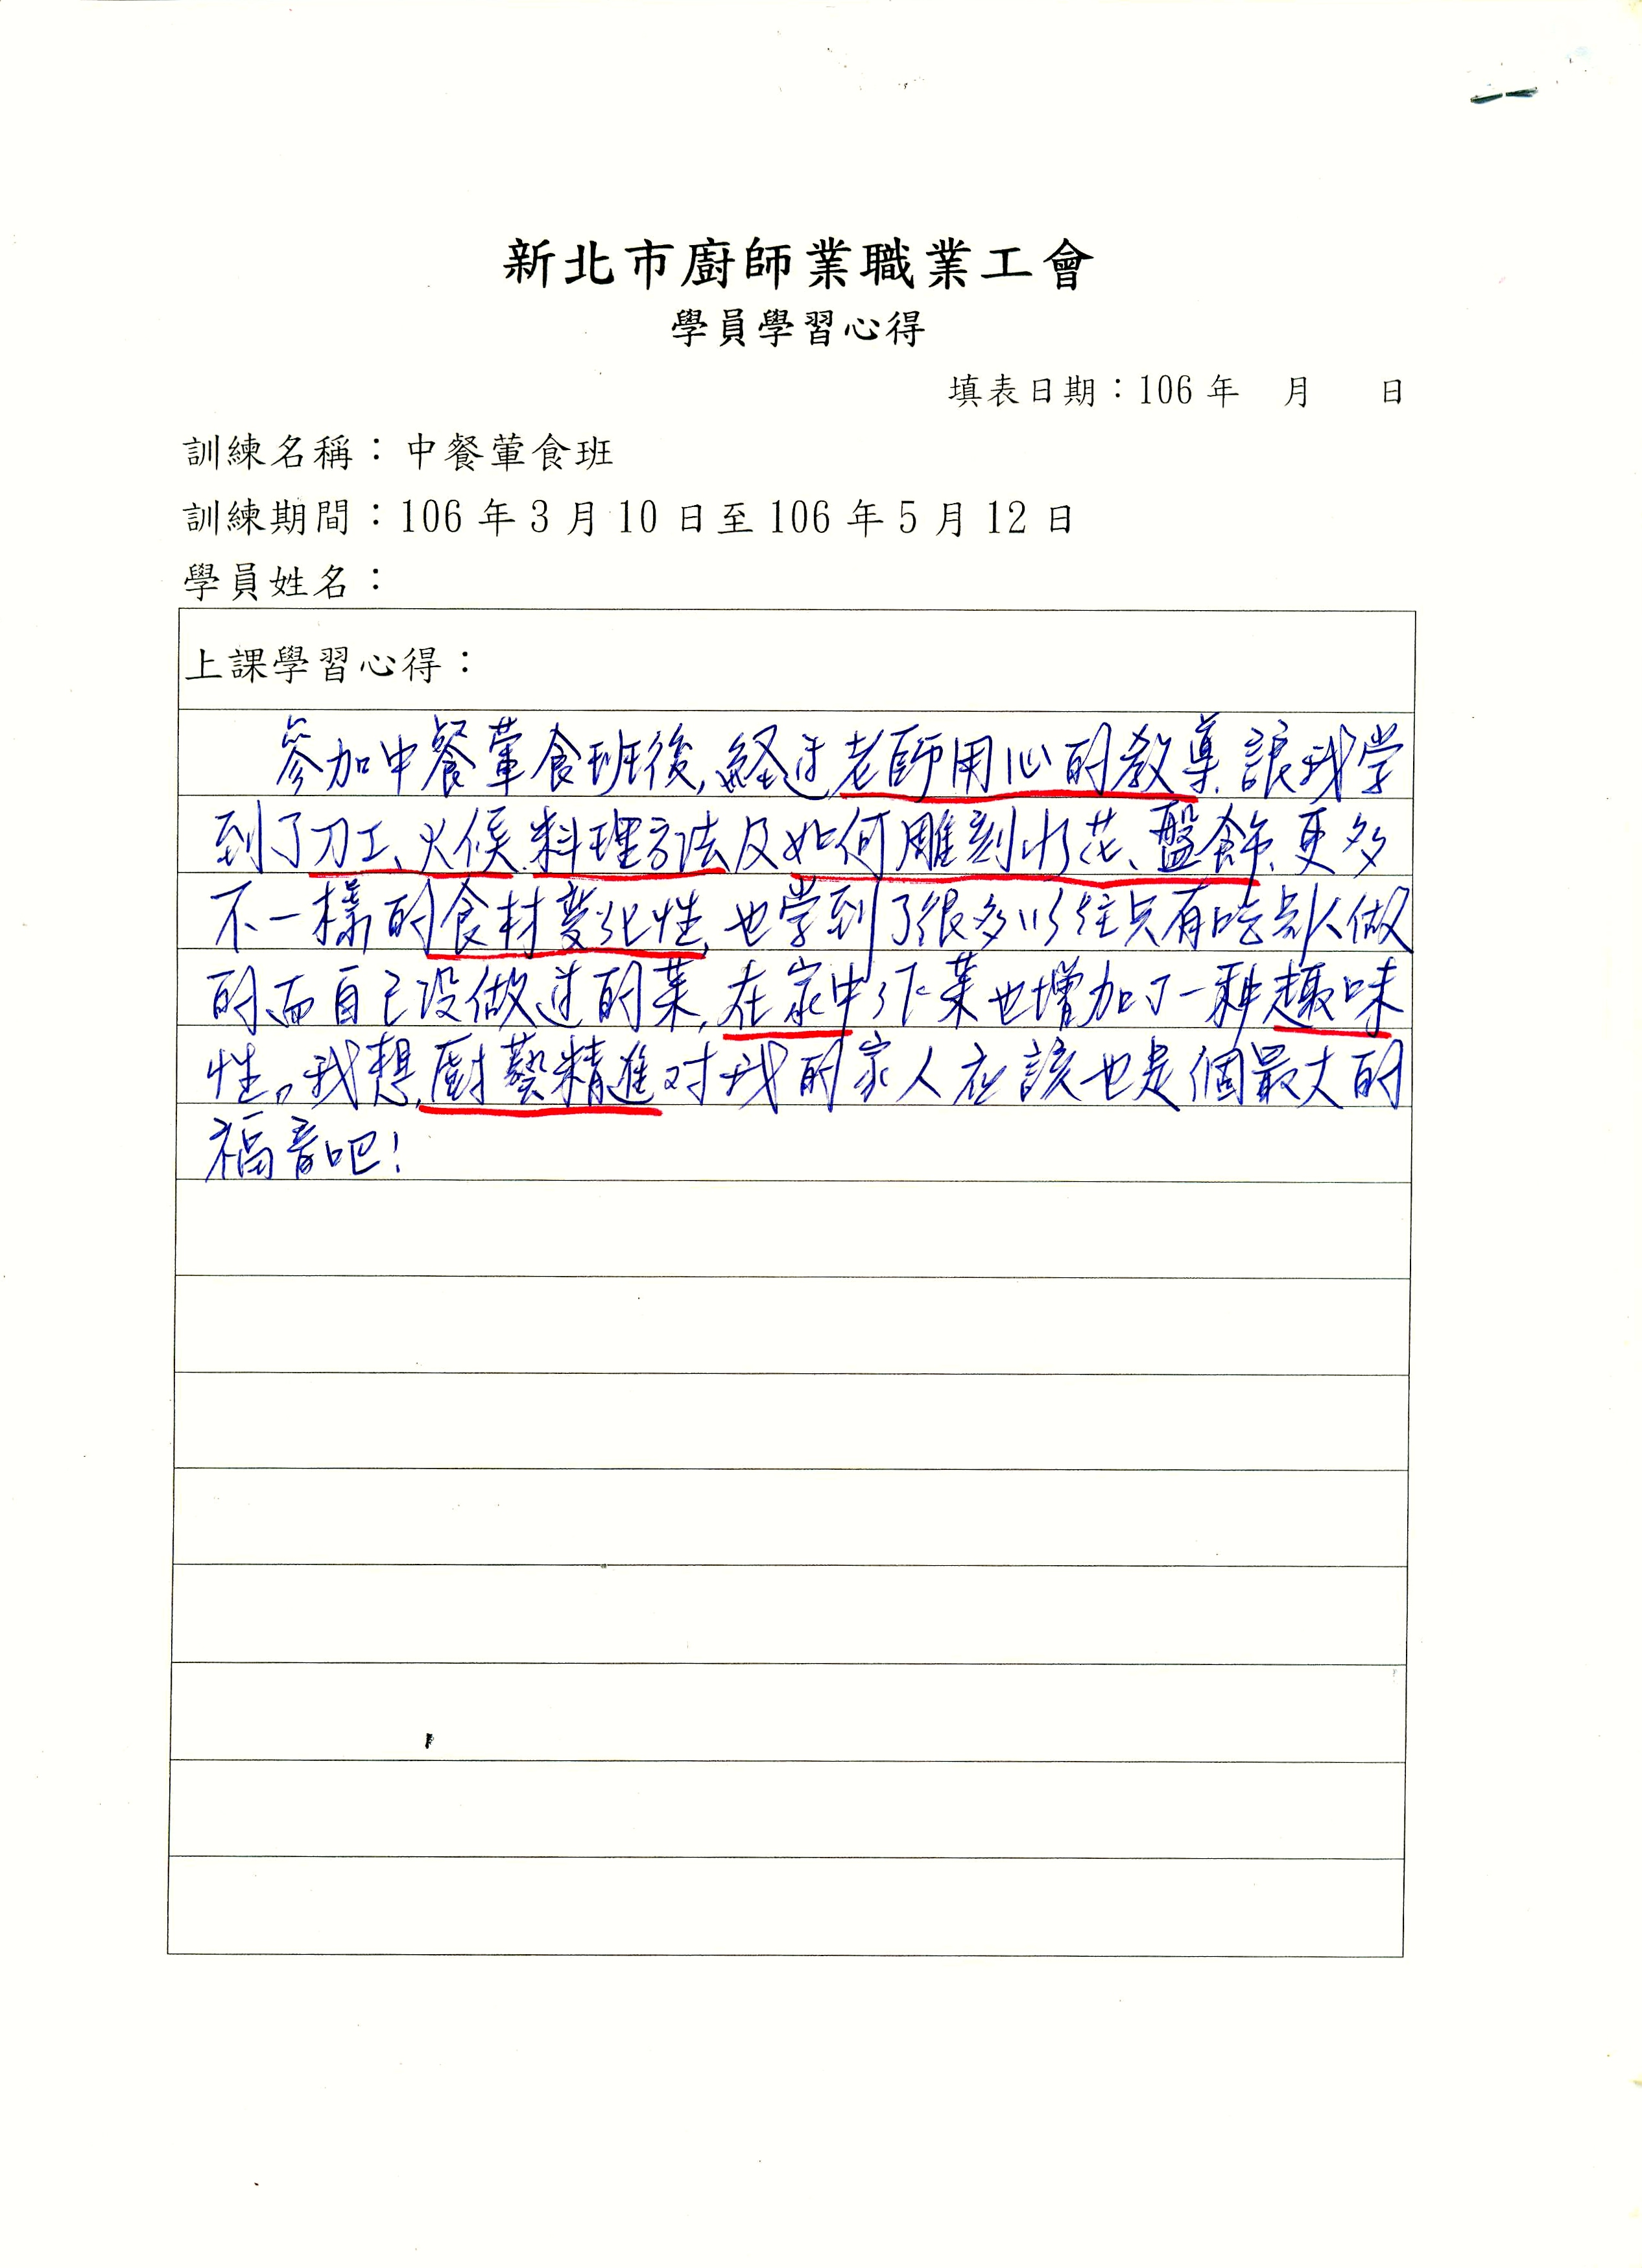 新北市廚師業職業工會
學員學習心得
填表日期：106 年 月 日
訓練名稱：中餐葷食班
訓練期間：106 年 3 月 10 日至 106 年 5 月 12 日
學員姓名：
上課學習心得：
參加中餐葷食班後,經过老師用心的教導,讓我学
到了刀工、火侯、料理方法及如何雕刻水花、盤飾、更多
不一樣的食材變化性,也学到了很多以往只有吃別人做
的而自己沒做过的菜,在家中作菜也增加了一种趣味
性。我想,廚藝精進对我的家人应該也是個最大的
福音吧!